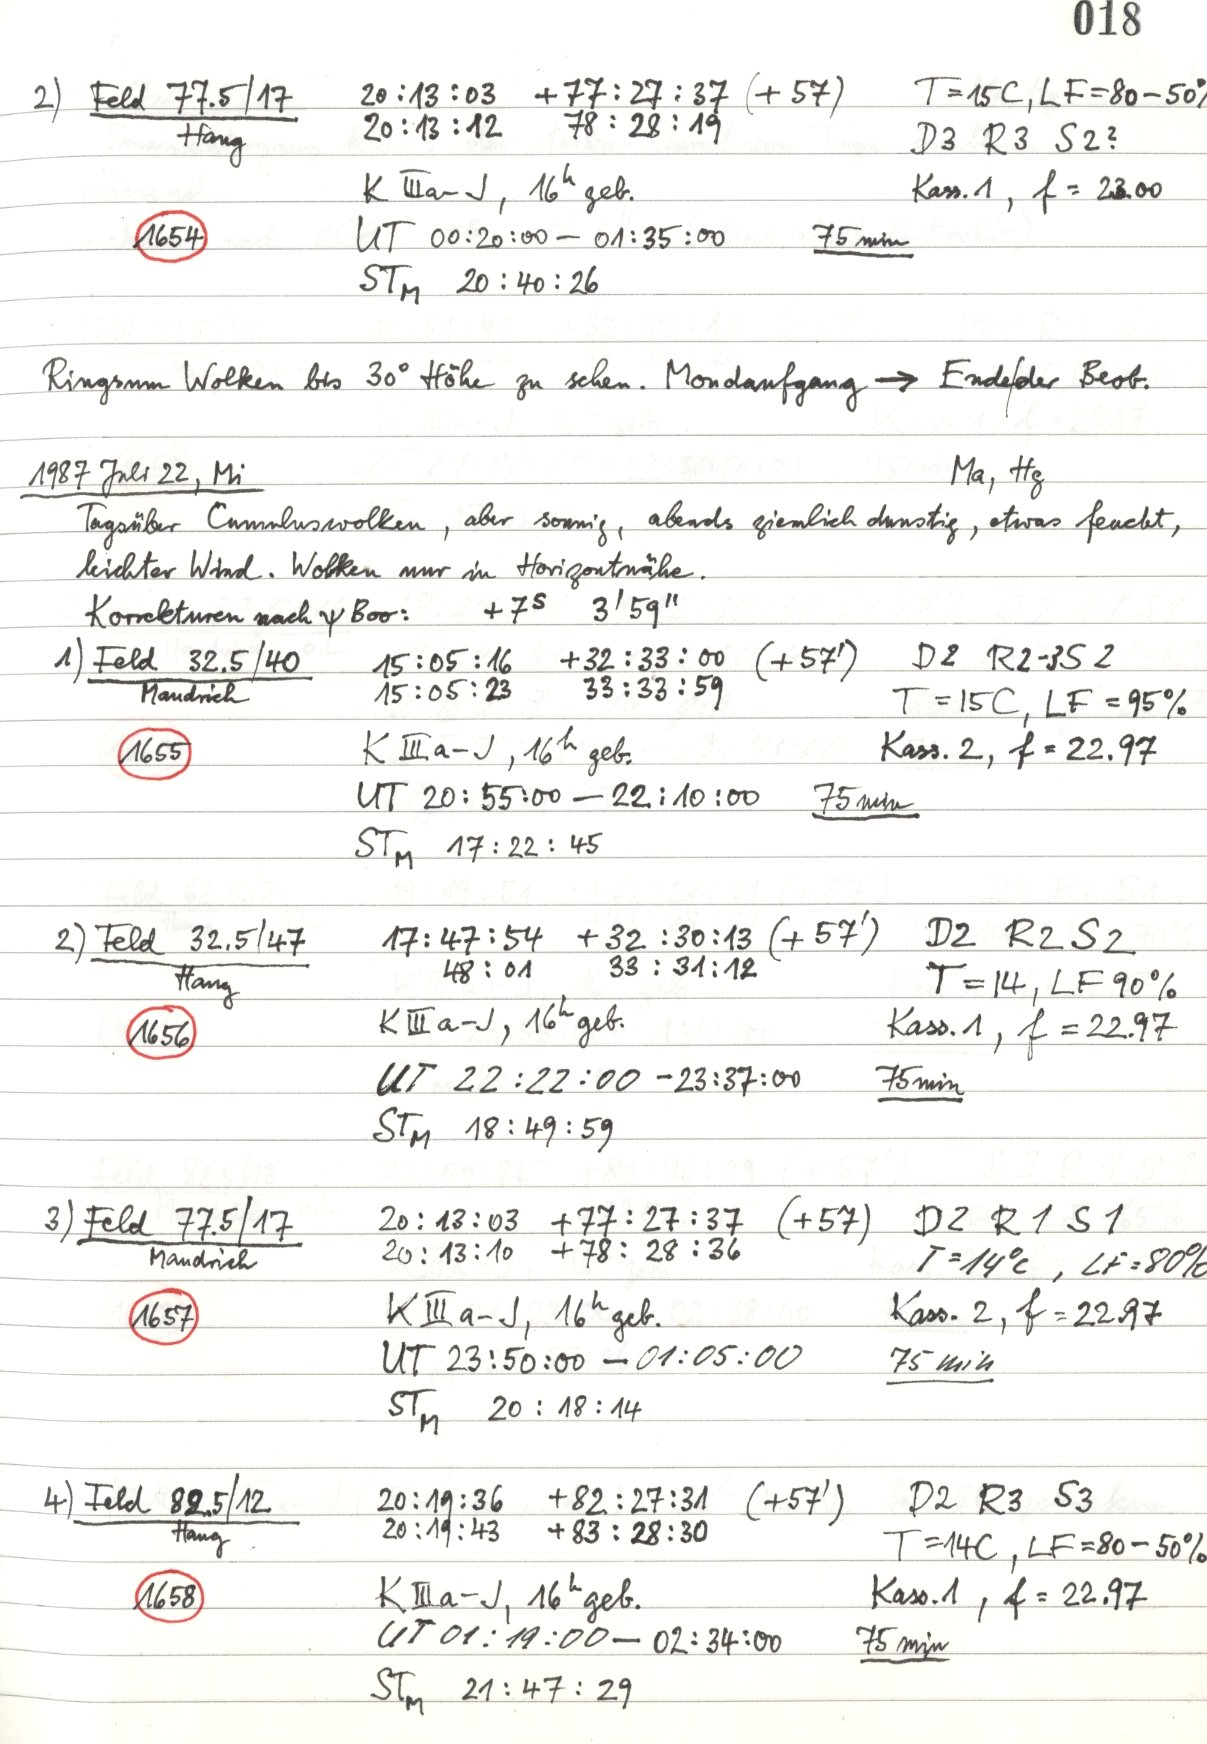 018
2) Feld 77.5/17 20:13:03 +77:27:37 (+57) T=15C, LF=80-50%
Hang 20:13:12 78:28:19 D3 R3 S2?
K IIIa-J, 16h geb. Kass.1, f = 23.00
1654 UT 00:20:00 - 01:35:00 75min
STM 20:40:26
Ringsum Wolken bis 30° Höhe zu sehen. Mondaufgang → Ende/der Beob.
1987 Juli 22, Mi Ma, Hg
Tagsüber Cumuluswolken, aber sonnig, abends ziemlich dunstig, etwas feucht,
leichter Wind. Wolken nur in Horizontnähe.
Korrekturen nach ψ Boo: +7s 3'59"
1) Feld 32.5/40 15:05:16 +32:33:00 (+57') D2 R2-3 S2
Mandrich 15:05:23 33:33:59 T=15C, LF=95%
1655 K IIIa-J, 16h geb. Kass. 2, f = 22.97
UT 20:55:00 - 22:10:00 75min
STM 17:22:45
2) Feld 32.5/47 17:47:54 +32:30:13 (+57') D2 R2 S2
Hang 48:01 33:31:12 T=14, LF 90%
1656 K IIIa-J, 16h geb. Kass.1, f = 22.97
UT 22:22:00 - 23:37:00 75min
STM 18:49:59
3) Feld 77.5/17 20:13:03 +77:27:37 (+57) D2 R1 S1
Mandrich 20:13:10 +78:28:36 T=14°C, LF=80%
1657 K IIIa-J, 16h geb. Kass. 2, f = 22.97
UT 23:50:00 - 01:05:00 75 min
STM 20:18:14
4) Feld 82.5/12 20:19:36 +82:27:31 (+57') D2 R3 S3
Hang 20:19:43 +83:28:30 T=14C, LF=80-50%
1658 K IIIa-J, 16h geb. Kass.1, f = 22.97
UT 01:19:00 - 02:34:00 75min
STM 21:47:29